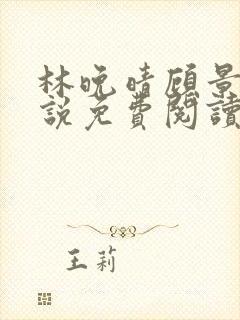 林晚晴顾景
說免費閱讀
王莉